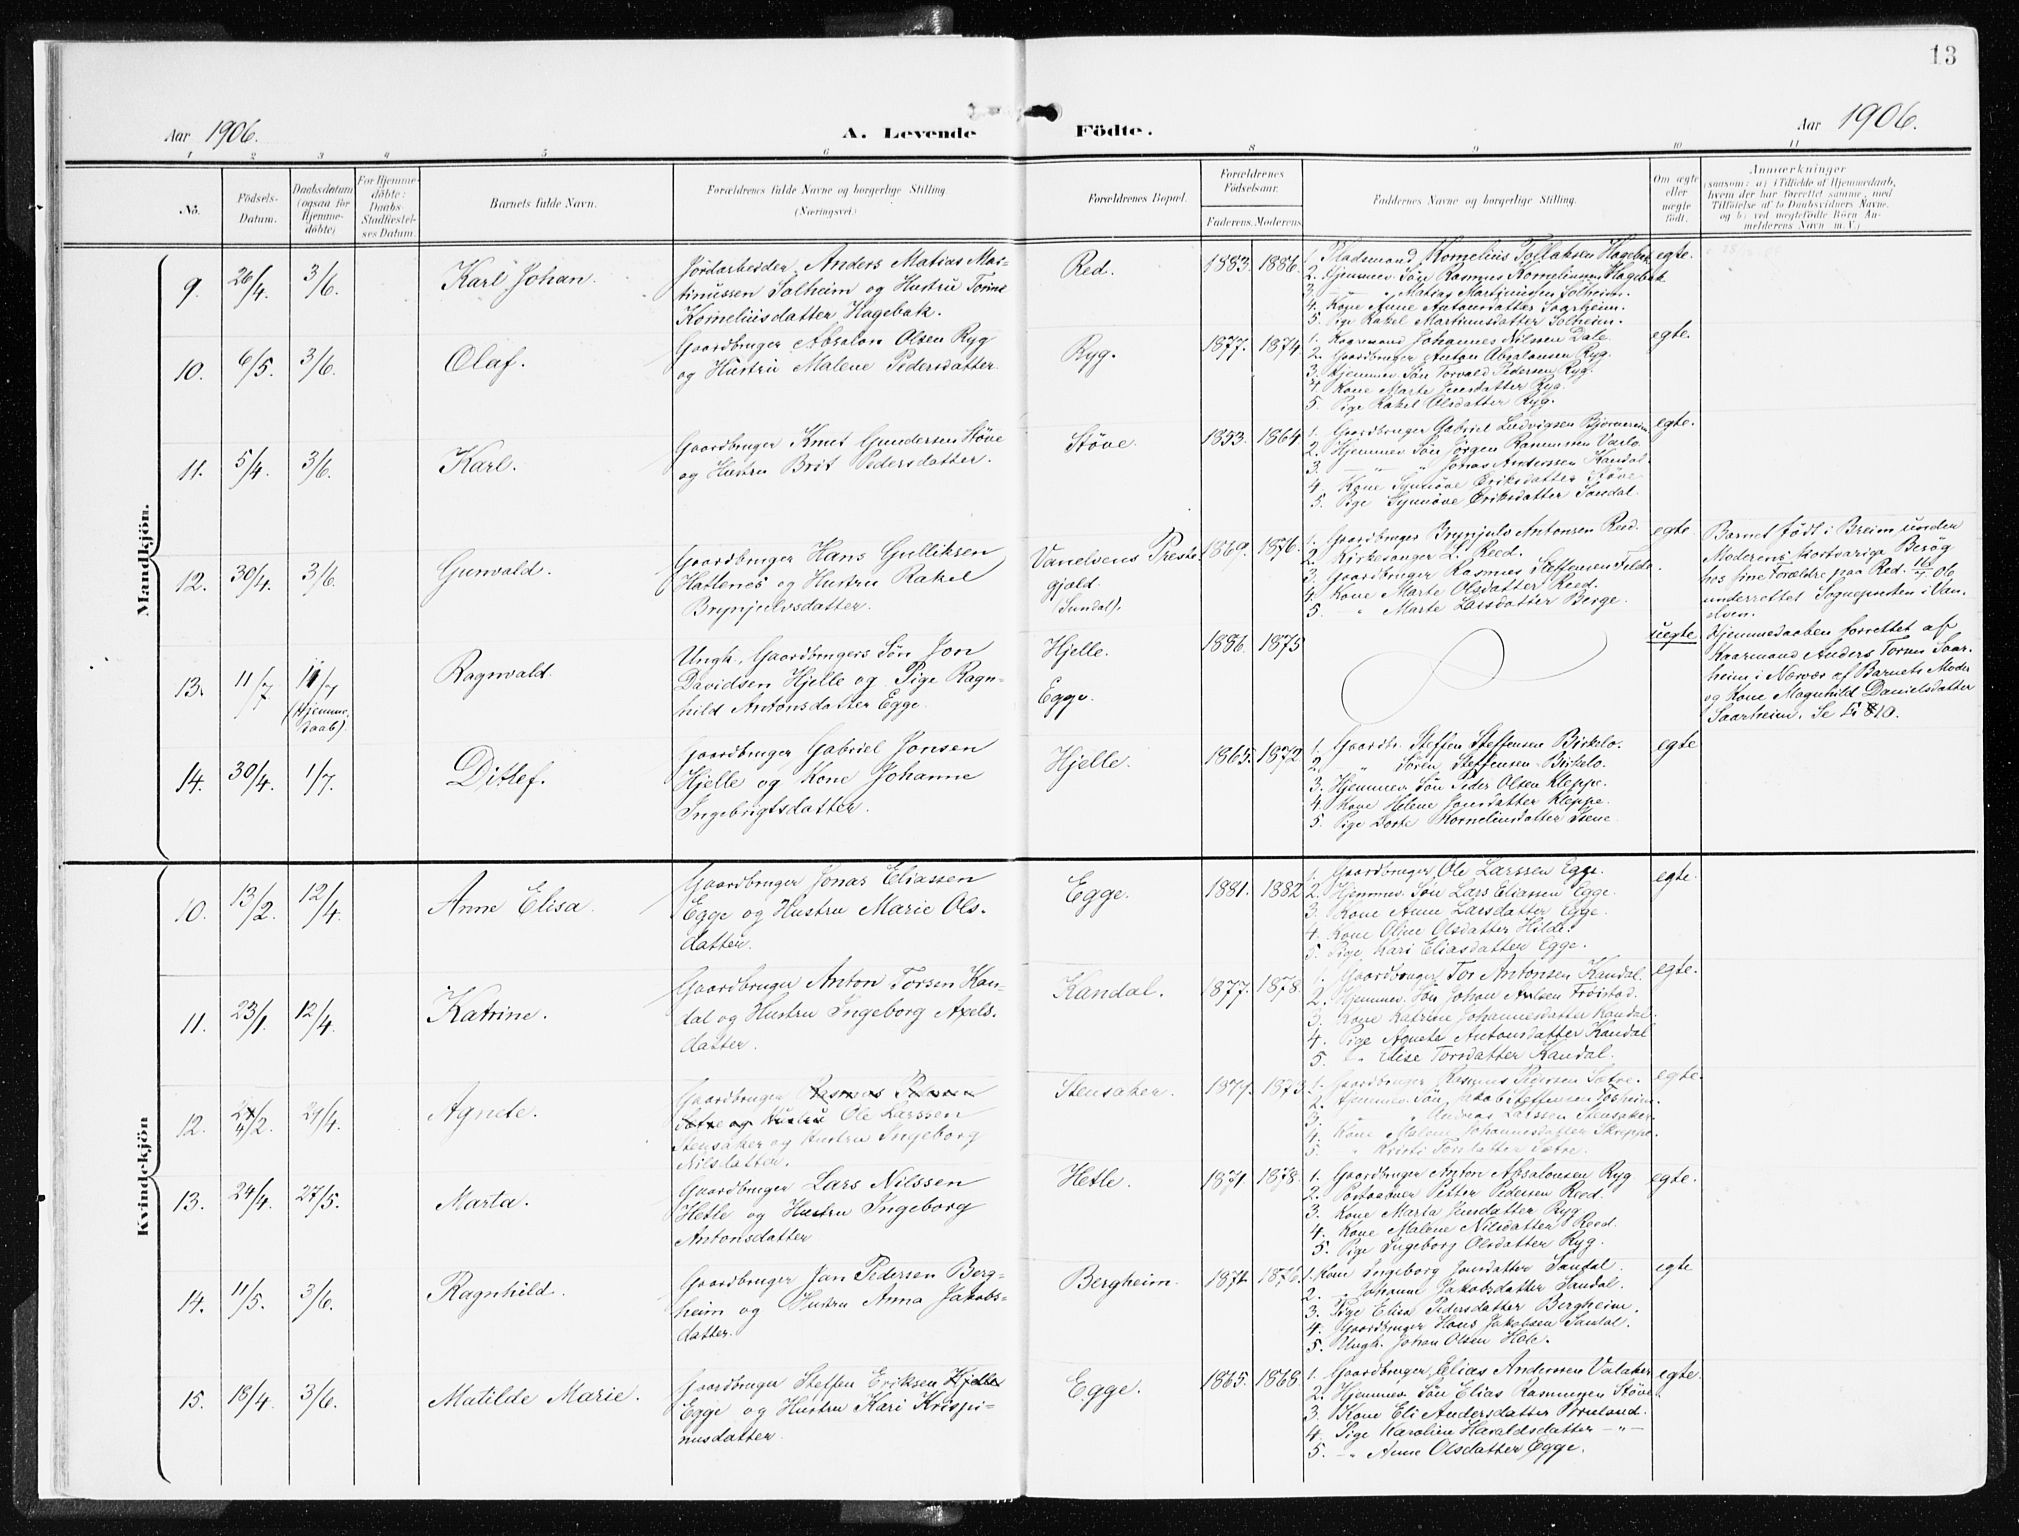 13
Aar 1906.
A. Levende Födte.
Aar 1906.
1 2 3 4 5 6 8 9 10 11
No.
Födsels-
Datum.
Daabsdatum
(ogsaa for
Hjemme-
döbte)
For Hjemme-
döbte:
Daabs-
Stadfæstel-
ses Datum.
Barnets fulde Navn.
Forældrenes fulde Navne og borgerlige Stilling.
(Næringsvei)
Forældrenes Bopæl.
Forældrenes
Födselsaar.
Faderens. Moderens.
Faddernes Navne og borgerlige Stilling.
Om ægte
eller
uægte
födt.
Anmærkninger
(saasom: a) i Tilfælde af Hjemmedaab,
hvem der har forrettet samme, med
Tilföielse af to Daabsvidners Navne,
og b) ved uægtefödte Börn An-
melderens Navn m. V.)
Mandkjön.
9. 26/4. 3/6. Karl Johan.
Jordarbeider Anders Matias Mar-
tinussen Solheim og Hustru Torine
Korneliusdatter Hagebak.
Red. 1883. 1886.
1. Pladsmand Kornelius Tollaksen Hagebak
2. Hjemmev. Søn Rasmus Korneliussen Hagebak
3. — " — " Matias Martinussen Solheim.
4. Kone Anne Antonsdatter Saarheim.
5. Pige Rakel Martinusdatter Solheim.
egte.
10. 6/5. 3/6. Olaf.
Gaardbruger Absalon Olsen Ryg
og Hustru Malene Pedersdatter.
Ryg. 1877. 1874.
1. Kaarmand Johannes Nilssen Dale.
2. Gaardbruger Anton Absalonsen Ryg.
3. Hjemmev. Søn Torvald Pedersen Ryg.
4. Kone Marte Jensdatter Ryg.
5. Pige Rakel Olsdatter Ryg.
egte.
11. 5/4. 3/6. Karl.
Gaardbruger Knut Gundersen Støve
og Hustru Brit Pedersdatter.
Støve. 1853. 1864.
1. Gaardbruger Gabriel Ludvigsen Bjørnereim
2. Hjemmev. Søn Jørgen Rasmussen
3. — " — " Jonas Anderssen Kandal.
4. Kone Synnøve Eriksdatter Støve
5. Pige Synnøve Eriksdatter Sandal.
egte.
12. 30/4. 3/6. Gunvald.
Gaardbruger Hans Gulliksen
Hatlenes og Hustru Rakel
Brynjulvsdatter.
Vanelvens Preste-
gjæld.
(Sundal).
1869. 1876.
1. Gaardbruger Brynjulv Antonsen Reed.
2. Kirkesanger L. Reed.
3. Gaardbruger Rasmus Steffensen Felde.
4. Kone Marte Olsdatter Reed.
5. — " Marte Larsdatter Berge.
egte
Barnet født i Breim under
Moderens kortvarige Besøg
hos sine Forældre paa Red. 16/7 Ole
underrettet Sognepresten i Van-
elven.
13. 11/7 11/7 (Hjemme-
daab). Ragnvald.
Ungk. Gaardbrugers Søn Jon
Davidsen Hjelle og Pige Ragn-
hild Antonsdatter Egge.
Hjelle.
Egge.
1886. 1875
uegte
Hjemmedaaben forrettet af
Kaarmand Anders Torsen Saar-
heim i Nærvær af Barnets Moder
og Kone Magnhild Danielsdatter
Saarheim. Se 10.
14. 30/4. 1/7. Ditlef.
Gaardbruger Gabriel Jonsen
Hjelle og Kone Johanne
Ingebrigtsdatter.
Hjelle. 1865. 1872.
1. Gaardbr. Steffen Steffensen Birkelo.
2. " Søren Steffensen Birkelo.
3. Hjemmev. Søn Peder Olsen Kleppe.
4. Kone Helene Jonsdatter Kleppe.
5. Pige Dorte Korneliusdatter Isene.
egte
Kvindekjön
10. 13/2. 12/4. Anne Elisa.
Gaardbruger Jonas Eliassen
Egge og Hustru Marie Ols-
datter.
Egge. 1881. 1882
1. Gaardbruger Ole Larssen Egge.
2. Hjemmev. Søn Lars Eliassen Egge.
3. Kone Anne Larsdatter Egge.
4. Kone Oline Olsdatter Hilde.
5. Pige Kari Eliasdatter Egge.
egte.
11. 23/1. 12/4. Katrine.
Gaardbruger Anton Torsen Kan-
dal og Hustru Ingeborg Axels-
datter.
Kandal. 1877. 1878.
1. Gaardbruger Tor Antonsen Kandal.
2. Hjemmev. Søn Johan Axelsen Frøistad.
3. Kone Katrine Johannesdatter Kandal.
4. Pige Agnete Antonsdatter Kandal
5. " Elise Torsdatter Kandal.
egte.
12. Agnete.
Gaardbruger Rasmus
Sætre og Hustru Ole Larssen
Stensaker og Hustru Ingeborg
Nilsdatter.
Stensaker. 1873.
1. Gaardbruger Rasmus Pedersen Sætre.
2. Hjemmev. Søn Jakob Steffensen
3. " Andreas Larssen Stensaker
4. Kone Malene Johannesdatter Skreppe.
5. — " Kristi Torsdatter Sætre.
egte.
13. 24/4. 27/5. Marta.
Gaardbruger Lars Nilssen
Hetle og Hustru Ingeborg
Antonsdatter
Hetle. 1871. 1878.
1. Gaardbruger Anton Absalonsen Ryg
2. Postaabner Petter Pedersen Reed.
3. Kone Marta Jensdatter Ryg
4. Kone Malene Nilsdatter Reed.
5. Pige Ingeborg Olsdatter Ryg.
egte.
14. 11/5. 3/6. Ragnhild.
Gaardbruger Jan Pedersen Berg-
heim og Hustru Anna Jakobs-
datter.
Bergheim. 1876.
1. Kone Ingeborg Jonsdatter Sandal.
2. " Johanne Jakobsdatter Sandal.
3. Pige Elisa Pedersdatter Bergheim.
4. Gaardbruger Hans Jakobsen Sandal.
5. Ungk. Johan Olsen Hole.
egte
15. 18/4. 3/6. Matilde Marie.
Gaardbruger Steffen Eriksen Hjelle
Egge og Hustru Kari Krispi-
nusdatter.
Egge. 1865. 1868.
1. Gaardbruger Elias Anderssen Vataker
2. Hjemmev. Søn Elias Rasmussen Støve.
3. Kone Eli Andersdatter
4. Pige Karoline Haraldsdatter — " —
5. — " Anne Olsdatter Egge.
egte.